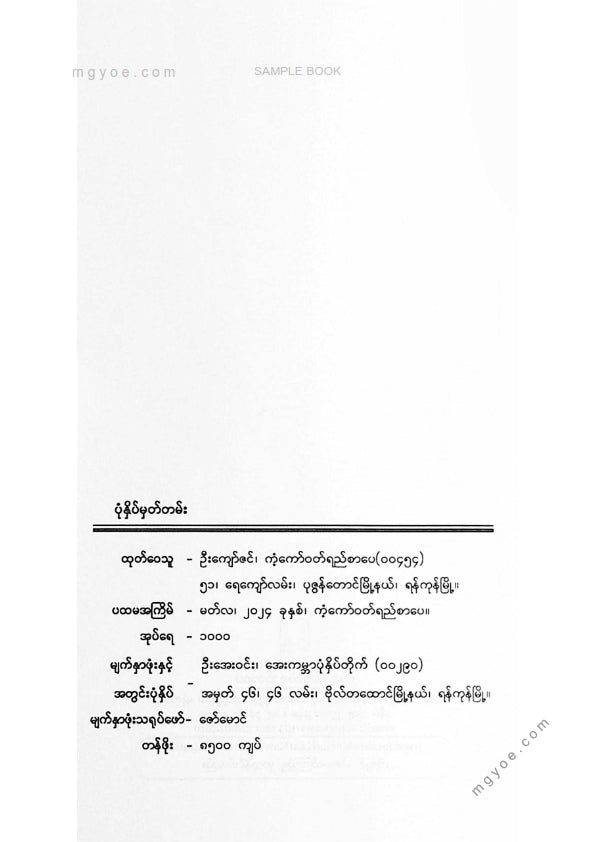 mgyoe.com
SAMPLE BOOK
ပုံနှိပ်မှတ်တမ်း
ထုတ်ဝေသူ - ဦးကျော်ဇင်၊ ကံ့ကော်ဝတ်ရည်စာပေ(၀၀၄၅၄)
၅၁၊ ရေကျော်လမ်း၊ ပုဇွန်တောင်မြို့နယ်၊ ရန်ကုန်မြို့။
ပထမအကြိမ် - မတ်လ၊ ၂၀၂၄ ခုနှစ်၊ ကံ့ကော်ဝတ်ရည်စာပေ။
အုပ်ရေ - ၁၀၀၀
မျက်နှာဖုံးနှင့် ဦးအေးဝင်း၊ အေးကမ္ဘာပုံနှိပ်တိုက် (၀၀၂၉၀)
အတွင်းပုံနှိပ် - အမှတ် ၄၆၊ ၄၆ လမ်း၊ ဗိုလ်တထောင်မြို့နယ်၊ ရန်ကုန်မြို့။
မျက်နှာဖုံးသရုပ်ဖော်- ဇော်မောင်
တန်ဖိုး - ၈၅၀၀ ကျပ်
mgyoe.com